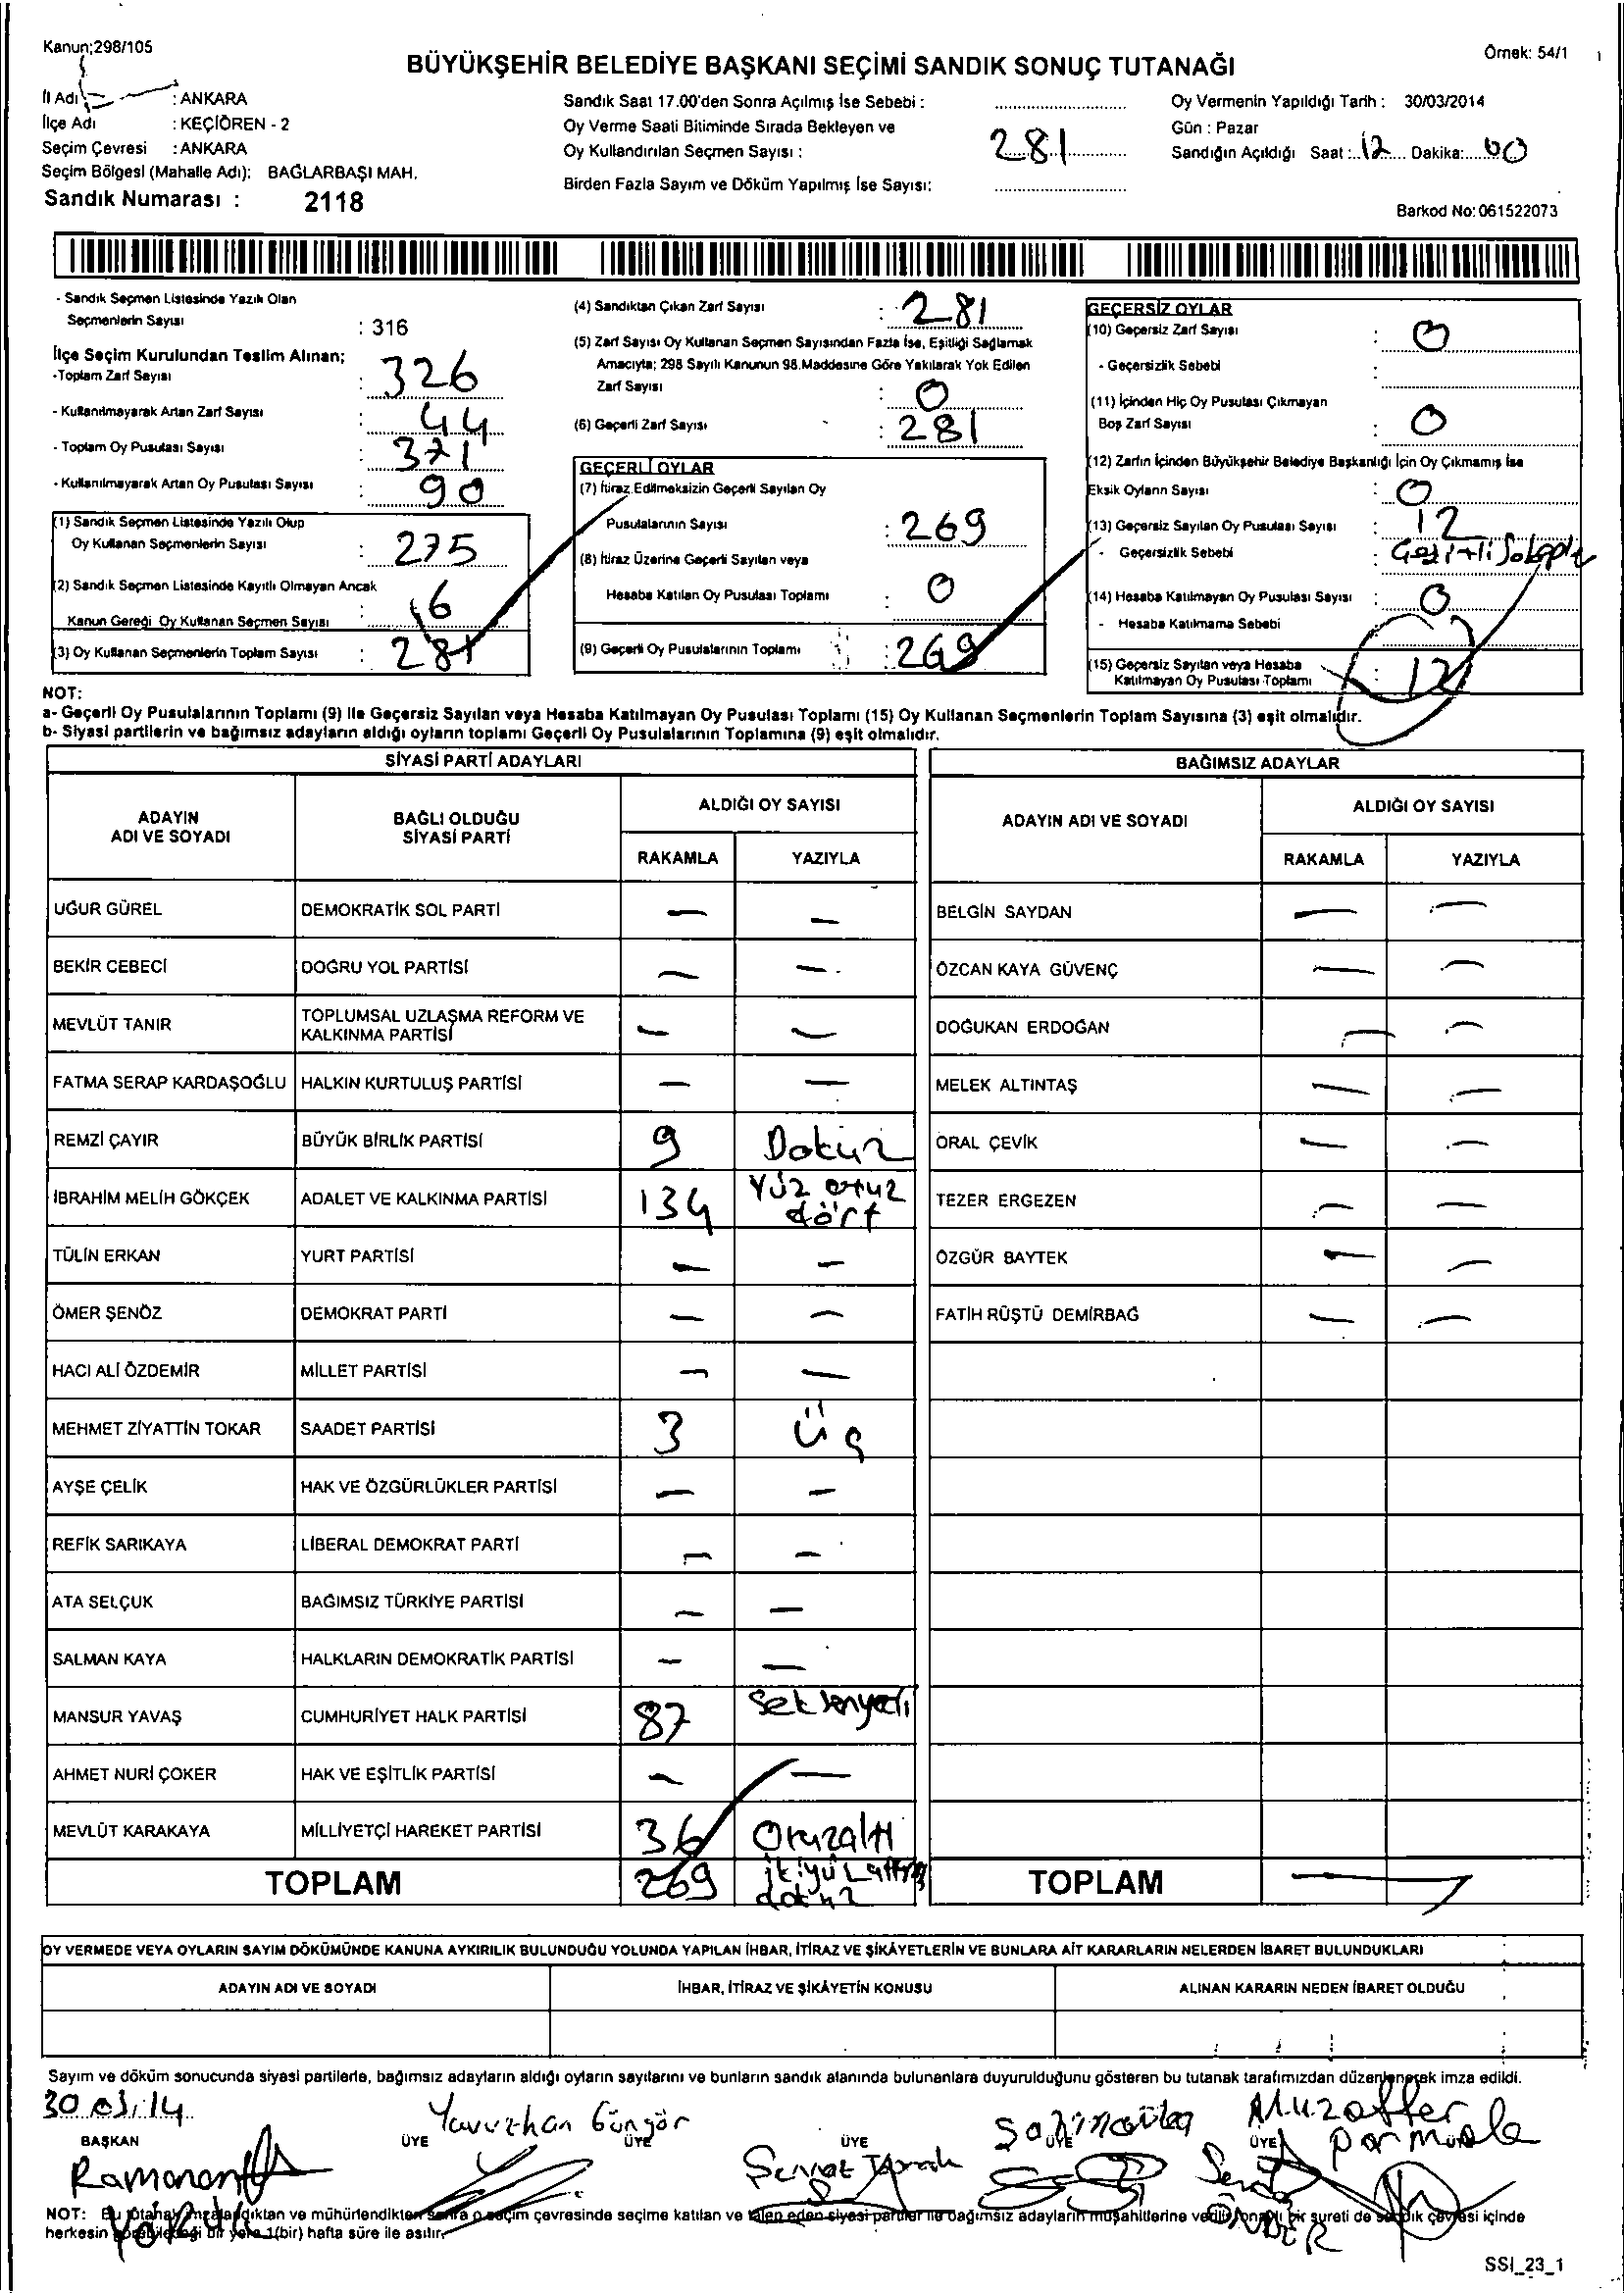 Kanun;298/105
Örnek: 54/1
BÜYÜKŞEHİR BELEDİYE BAŞKANI SEÇİMİ SANDIK SONUÇ TUTANAĞI
İl Adı : ANKARA
İlçe Adı : KEÇİÖREN - 2
Seçim Çevresi : ANKARA
Seçim Bölgesi (Mahalle Adı): BAĞLARBAŞI MAH.
Sandık Numarası : 2118
Sandık Saat 17.00'den Sonra Açılmış İse Sebebi :
Oy Verme Saati Bitiminde Sırada Bekleyen ve
Oy Kullandırılan Seçmen Sayısı : 281
Birden Fazla Sayım ve Döküm Yapılmış İse Sayısı:
Oy Vermenin Yapıldığı Tarih : 30/03/2014
Gün : Pazar
Sandığın Açıldığı Saat : 12 Dakika: 00
Barkod No: 061522073
- Sandık Seçmen Listesinde Yazılı Olan
Seçmenlerin Sayısı : 316
İlçe Seçim Kurulundan Teslim Alınan;
-Toplam Zarf Sayısı : 326
- Kullanılmayarak Artan Zarf Sayısı : 44
- Toplam Oy Pusulası Sayısı : 371
- Kullanılmayarak Artan Oy Pusulası Sayısı : 90
(1) Sandık Seçmen Listesinde Yazılı Olup
Oy Kullanan Seçmenlerin Sayısı : 275
(2) Sandık Seçmen Listesinde Kayıtlı Olmayan Ancak
Kanun Gereği Oy Kullanan Seçmen Sayısı : 6
(3) Oy Kullanan Seçmenlerin Toplam Sayısı : 281
(4) Sandıktan Çıkan Zarf Sayısı : 281
(5) Zarf Sayısı Oy Kullanan Seçmen Sayısından Fazla İse, Eşitliği Sağlamak
Amacıyla; 298 Sayılı Kanunun 98.Maddesine Göre Yakılarak Yok Edilen
Zarf Sayısı : 0
(6) Geçerli Zarf Sayısı : 281
GEÇERLİ OYLAR
(7) İtiraz Edilmeksizin Geçerli Sayılan Oy
Pusulalarının Sayısı : 269
(8) İtiraz Üzerine Geçerli Sayılan veya
Hesaba Katılan Oy Pusulası Toplamı : 0
(9) Geçerli Oy Pusulalarının Toplamı : 269
GEÇERSİZ OYLAR
(10) Geçersiz Zarf Sayısı : 0
- Geçersizlik Sebebi :
(11) İçinden Hiç Oy Pusulası Çıkmayan
Boş Zarf Sayısı : 0
(12) Zarfın İçinden Büyükşehir Belediye Başkanlığı İçin Oy Çıkmamış İse
Eksik Oyların Sayısı : 0
(13) Geçersiz Sayılan Oy Pusulası Sayısı : 12
- Geçersizlik Sebebi :
(14) Hesaba Katılmayan Oy Pusulası Sayısı : 0
- Hesaba Katılmama Sebebi
(15) Geçersiz Sayılan veya Hesaba
Katılmayan Oy Pusulası Toplamı : 12
NOT:
a- Geçerli Oy Pusulalarının Toplamı (9) ile Geçersiz Sayılan veya Hesaba Katılmayan Oy Pusulası Toplamı (15) Oy Kullanan Seçmenlerin Toplam Sayısına (3) eşit olmalıdır.
b- Siyasi partilerin ve bağımsız adayların aldığı oyların toplamı Geçerli Oy Pusulalarının Toplamına (9) eşit olmalıdır.
SİYASİ PARTİ ADAYLARI
ADAYIN ADI VE SOYADI
BAĞLI OLDUĞU SİYASİ PARTİ
ALDIĞI OY SAYISI
RAKAMLA YAZIYLA
UĞUR GÜREL DEMOKRATİK SOL PARTİ — —
BEKİR CEBECİ DOĞRU YOL PARTİSİ — —
MEVLÜT TANIR TOPLUMSAL UZLAŞMA REFORM VE KALKINMA PARTİSİ — —
FATMA SERAP KARDAŞOĞLU HALKIN KURTULUŞ PARTİSİ — —
REMZİ ÇAYIR BÜYÜK BİRLİK PARTİSİ 9 Dokuz
İBRAHİM MELİH GÖKÇEK ADALET VE KALKINMA PARTİSİ 134 Yüz otuz dört
TÜLİN ERKAN YURT PARTİSİ — —
ÖMER ŞENÖZ DEMOKRAT PARTİ — —
HACI ALİ ÖZDEMİR MİLLET PARTİSİ — —
MEHMET ZİYATTİN TOKAR SAADET PARTİSİ 3 Üç
AYŞE ÇELİK HAK VE ÖZGÜRLÜKLER PARTİSİ — —
REFİK SARIKAYA LİBERAL DEMOKRAT PARTİ — —
ATA SELÇUK BAĞIMSIZ TÜRKİYE PARTİSİ — —
SALMAN KAYA HALKLARIN DEMOKRATİK PARTİSİ — —
MANSUR YAVAŞ CUMHURİYET HALK PARTİSİ 87 Seksenyedi
AHMET NURİ ÇOKER HAK VE EŞİTLİK PARTİSİ — —
MEVLÜT KARAKAYA MİLLİYETÇİ HAREKET PARTİSİ 36 Otuzaltı
TOPLAM 269 ikiyüzaltmış dokuz
BAĞIMSIZ ADAYLAR
ADAYIN ADI VE SOYADI
ALDIĞI OY SAYISI
RAKAMLA YAZIYLA
BELGİN SAYDAN — —
ÖZCAN KAYA GÜVENÇ — —
DOĞUKAN ERDOĞAN — —
MELEK ALTINTAŞ — —
ORAL ÇEVİK — —
TEZER ERGEZEN — —
ÖZGÜR BAYTEK — —
FATİH RÜŞTÜ DEMİRBAĞ — —
TOPLAM —
OY VERMEDE VEYA OYLARIN SAYIM DÖKÜMÜNDE KANUNA AYKIRILIK BULUNDUĞU YOLUNDA YAPILAN İHBAR, İTİRAZ VE ŞİKÂYETLERİN VE BUNLARA AİT KARARLARIN NELERDEN İBARET BULUNDUKLARI
ADAYIN ADI VE SOYADI
İHBAR, İTİRAZ VE ŞİKÂYETİN KONUSU
ALINAN KARARIN NEDEN İBARET OLDUĞU
Sayım ve döküm sonucunda siyasi partilerle, bağımsız adayların aldığı oyların sayılarını ve bunların sandık alanında bulunanlara duyurulduğunu gösteren bu tutanak tarafımızdan düzenlenerek imza edildi.
30.03.14
Yavuzhan Güngör
Muzaffer
BAŞKAN ÜYE ÜYE ÜYE ÜYE ÜYE ÜYE
Ramazan
ÖNDER
NOT: Bu tutanak imzalandıktan ve mühürlendikten sonra o seçim çevresinde seçime katılan ve talep eden siyasi partiler ile bağımsız adayların müşahitlerine verilir, onaylı bir sureti de sandık çevresi içinde
herkesin görebileceği bir yere 1(bir) hafta süre ile asılır.
SSI_23_1